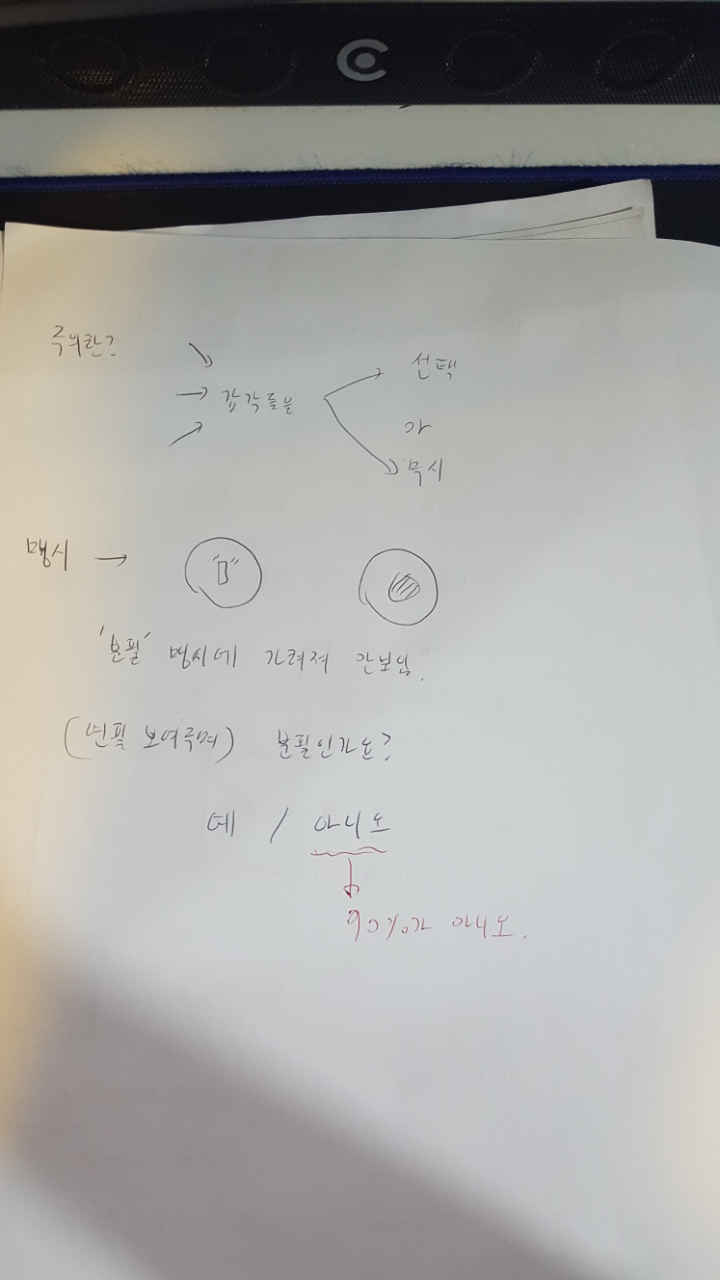 주의란?
감각들을
선택
or
무시
맹시 →
"B"
'분필' 맹시에 가려져 안보임.
(연필 보여주며) 분필인가요?
네 / 아니오
90%가 아니오.